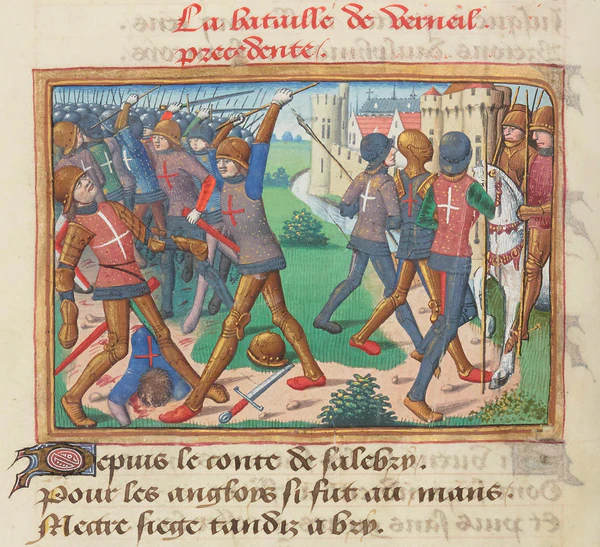 La bataille de verneil
precedente
Depuis le conte de salebry.
Pour les angloys si fut au mans.
Mectre siege tandiz a bry.